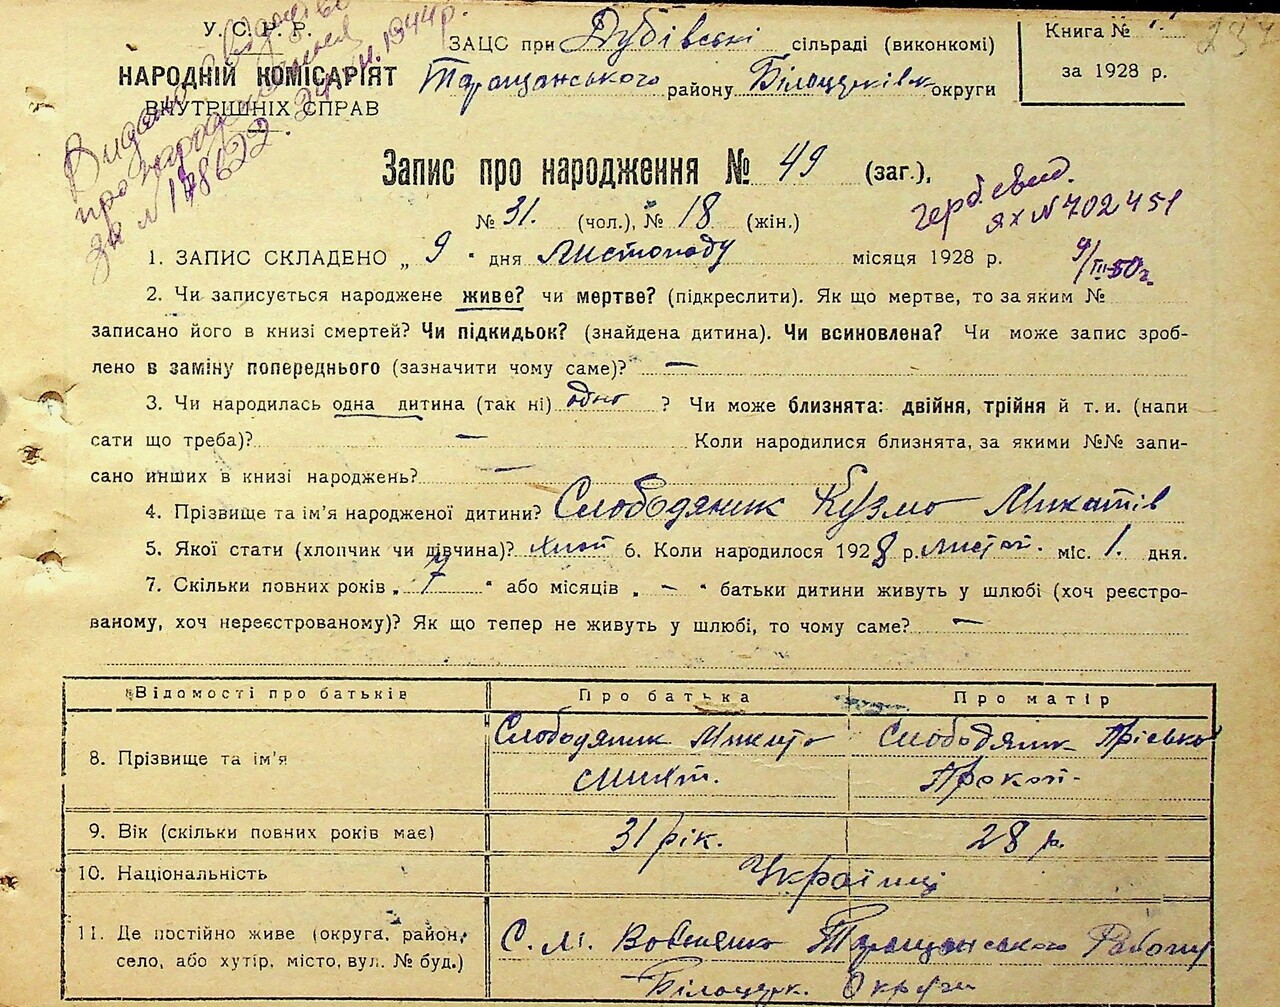 У.С.Р.Р.
НАРОДНІЙ КОМІСАРІЯТ
ВНУТРІШНІХ СПРАВ
ЗАЦС при Дубівські сільраді (виконкомі)
Таращанського району Білоцерківк округи
Книга №
за 1928 р.
237
Видано
про
за № 178622 1944 р.
Запис про народження № 49 (заг.),
№ 31. (чол.), № 18 (жін.)
герб. свид.
ЯХ № 702451
9/III-50г.
1. ЗАПИС СКЛАДЕНО „ 9 " дня Листопаду місяця 1928 р.
2. Чи записується народжене живе? чи мертве? (підкреслити). Як що мертве, то за яким №
записано його в книзі смертей? Чи підкидьок? (знайдена дитина). Чи всиновлена? Чи може запис зроб-
лено в заміну попереднього (зазначити чому саме)? —
3. Чи народилась одна дитина (так ні) одно ? Чи може близнята: двійня, трійня й т. и. (напи
сати що треба)? — Коли народилися близнята, за якими №№ запи-
сано инших в книзі народжень? —
4. Прізвище та ім'я народженої дитини? Слободяник Кузмо Микитів
5. Якої стати (хлопчик чи дівчина)? 6. Коли народилося 1928 р. листоп. міс. 1. дня.
7. Скільки повних років „ 7 " або місяців „ — " батьки дитини живуть у шлюбі (хоч реєстро-
ваному, хоч нереєстрованому)? Як що тепер не живуть у шлюбі, то чому саме? —
Відомості про батьків Про батька Про матір
8. Прізвище та ім'я Слободяник Микито Слободяник Прісько
Прокоп-
9. Вік (скільки повних років має) 31 рік. 28 р.
10. Національність Українці
11. Де постійно живе (округа, район,
село, або хутір, місто, вул. № буд.)
С. М. Вовнянко Таращанського Району
Білоцерк. Округи